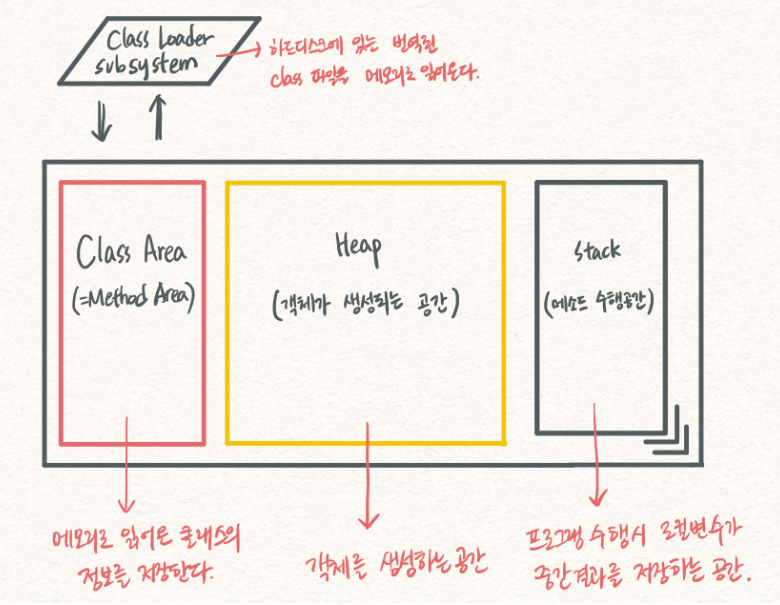 Class Loader
subsystem
하드디스크에 있는 번역된
class 파일을 메모리로 읽어온다.
Class Area
(=Method Area)
Heap
(객체가 생성되는 공간)
Stack
(메소드 수행공간)
메모리로 읽어온 클래스의
정보를 저장한다.
객체를 생성하는 공간
프로그램 수행시 로컬변수가
중간결과를 저장하는 공간.